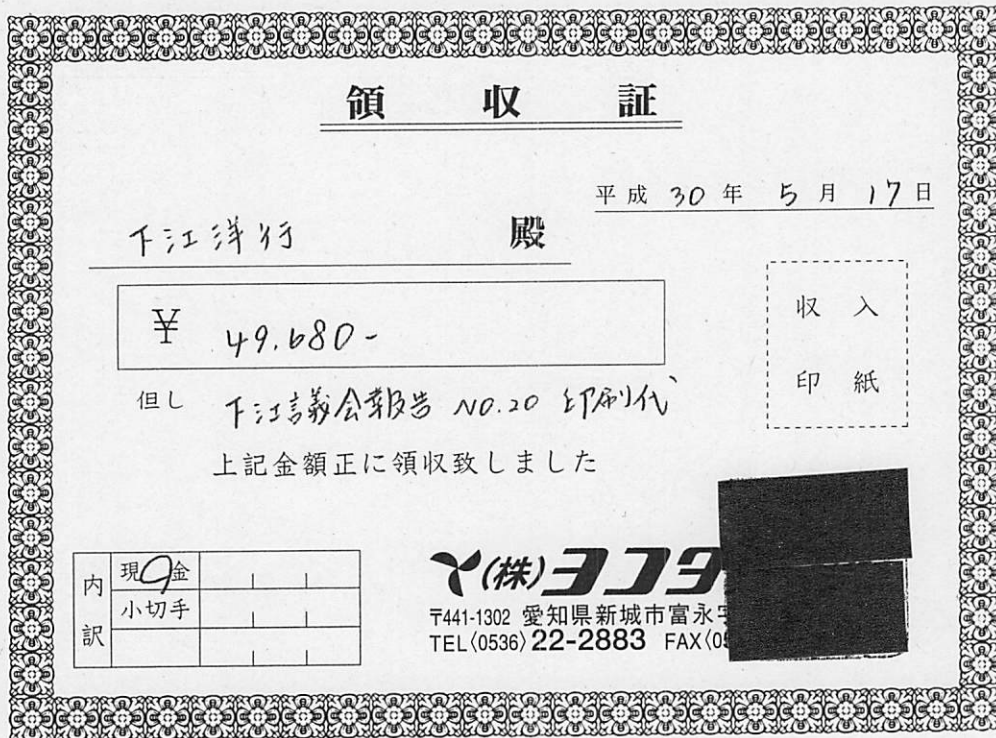 領収証
平成30年5月17日
下江洋行 殿
¥ 49,680-
収入
印紙
但し 下江議会報告 NO.20 印刷代
上記金額正に領収致しました
内訳
現金
小切手
(株)ヨコタ
〒441-1302 愛知県新城市富永字
TEL(0536)22-2883 FAX(05